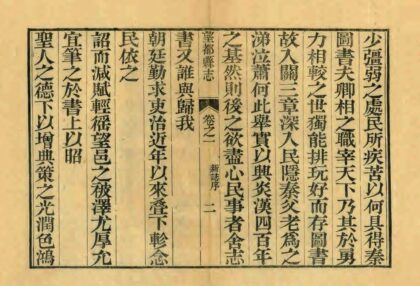 少彊弱之處民所疾苦以何具得秦
圖書夫卿相之職宰天下乃其於勇
力相較之世獨能排玩好而存圖書
故入關三章深入民隱秦父老爲之
涕泣蕭何此舉實以興炎漢四百年
之基然則後之欲盡心民事者舍志
書又誰與歸我
朝廷勤求吏治近年以來疊下軫念
民依之
望都縣志
卷之一
新誌序
二
詔而減賦輕徭望邑之被澤尤厚允
宜筆之於書上以昭
聖人之德下以增典策之光潤色鴻